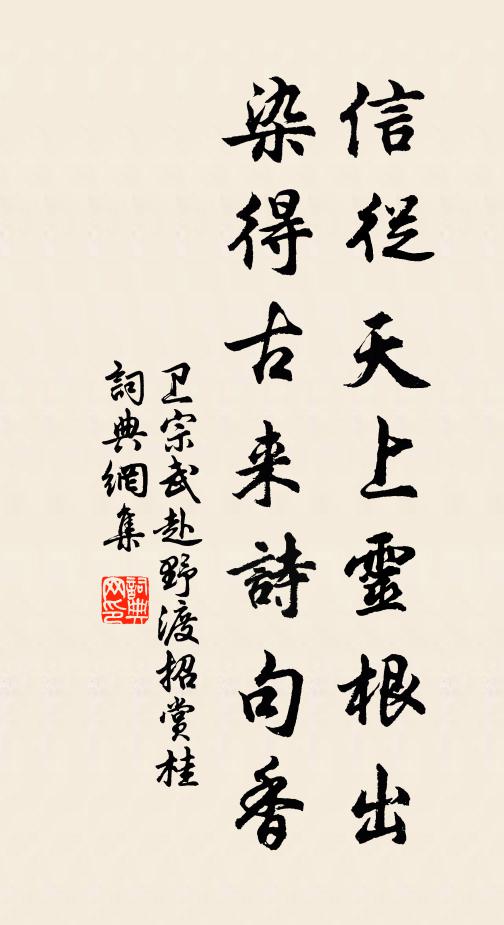 信從天上靈根出
染得古来詩句香
卫宗武赴野渡招赏桂
詞典網集
詞典網印